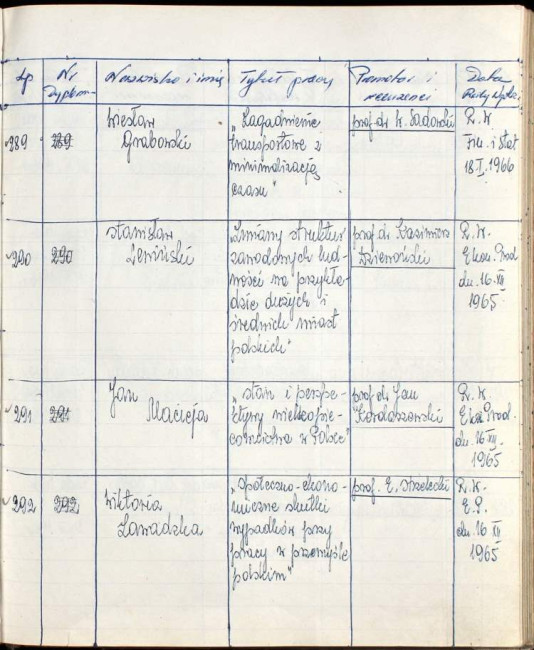 Lp
Nr
Dyplom.
Nazwisko i imię
Tytuł pracy
Promotor i
recenzenci
Data
Rady Wydz.
289
289
Wiesław
Grabowski
„Zagadnienie
transportowe z
minimalizacją
czasu"
prof. dr W. Sadowski
R.W.
Fin. i Stat
18.I.1966
290
290
Stanisław
„Zmiany struktur
zawodowych lud-
ności na przykła-
dzie dużych i
średnich miast
polskich"
prof. dr Kazimierz
Dziewoński
R.W.
Ekon. Prod.
dn. 16.XII
1965
291
291
Jan
Macieja
„Stan i perspe-
ktywy wielkopie-
cownictwa w Polsce"
prof. dr Jan
Kordaszewski
R.W.
Ekon. Prod.
dn. 16 XII.
1965
292
292
Wiktoria
Zawadzka
„Społeczno-ekono-
miczne skutki
wypadków przy
pracy w przemyśle
polskim"
prof. E. Strzelecki
R.W.
E.P.
dn. 16 XII
1965